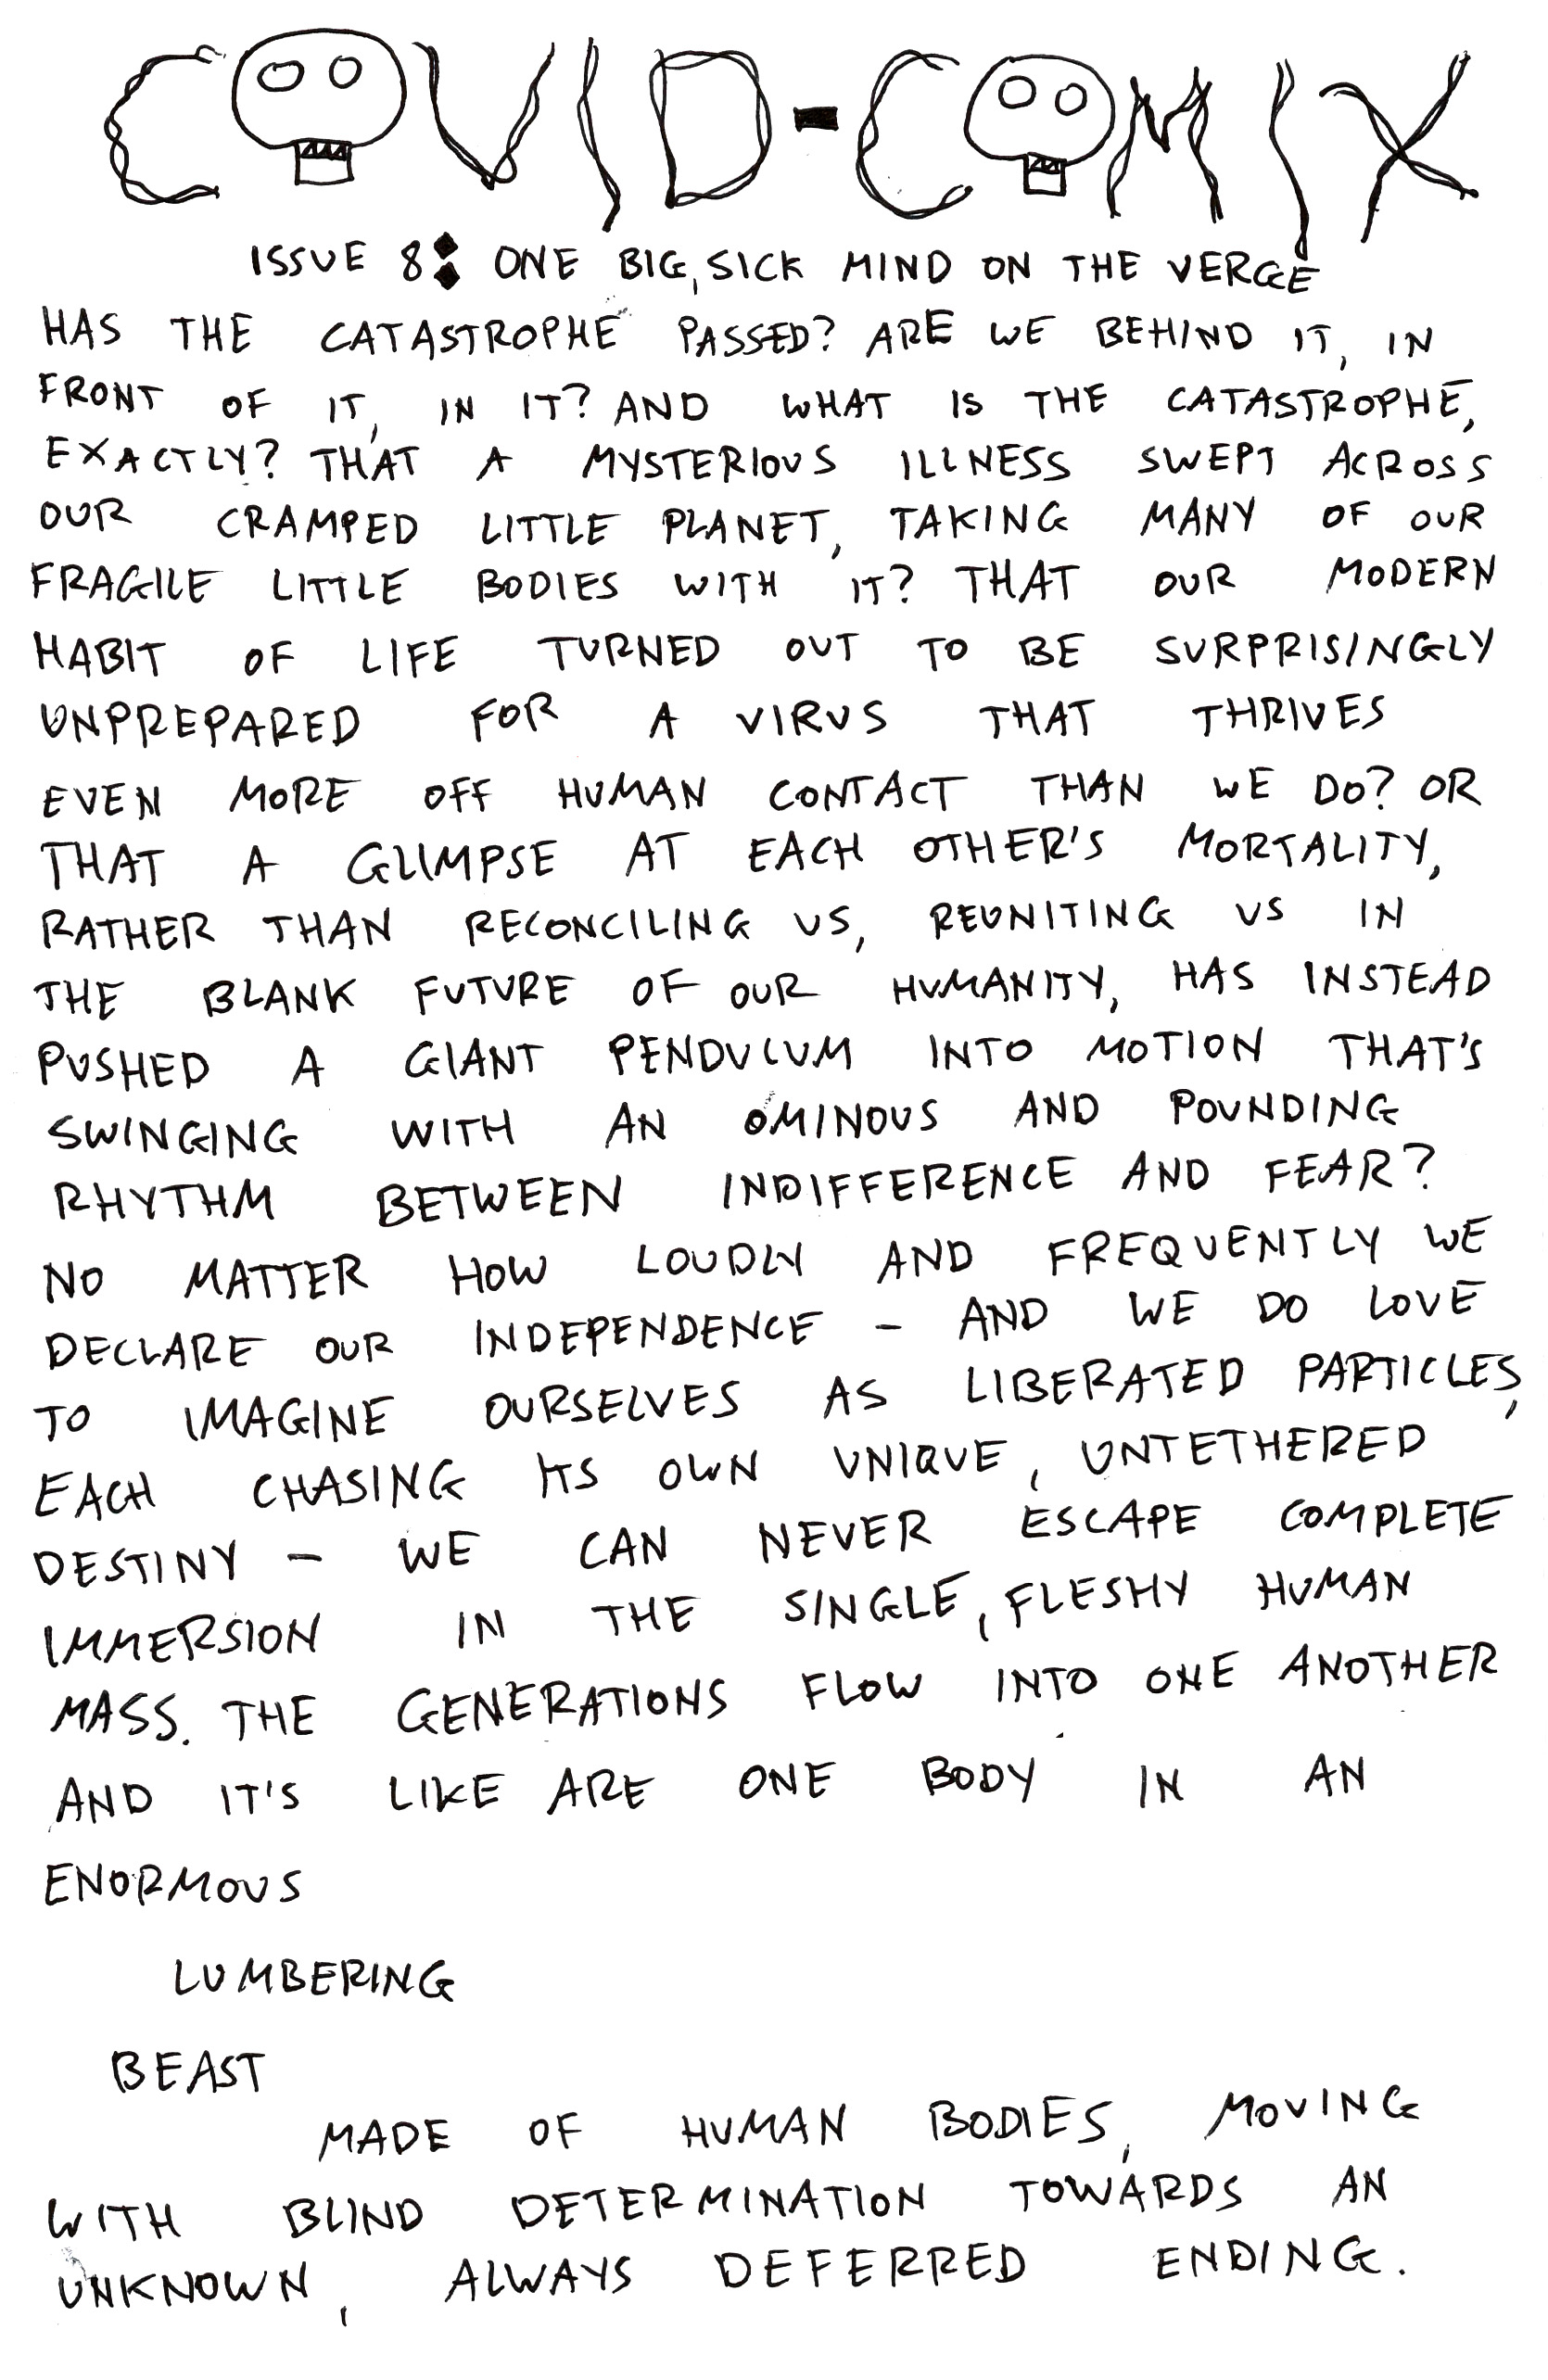 COVID-COMIX
ISSUE 8: ONE BIG, SICK MIND ON THE VERGE
HAS THE CATASTROPHE PASSED? ARE WE BEHIND IT, IN
FRONT OF IT, IN IT? AND WHAT IS THE CATASTROPHE,
EXACTLY? THAT A MYSTERIOUS ILLNESS SWEPT ACROSS
OUR CRAMPED LITTLE PLANET, TAKING MANY OF OUR
FRAGILE LITTLE BODIES WITH IT? THAT OUR MODERN
HABIT OF LIFE TURNED OUT TO BE SURPRISINGLY
UNPREPARED FOR A VIRUS THAT THRIVES
EVEN MORE OFF HUMAN CONTACT THAN WE DO? OR
THAT A GLIMPSE AT EACH OTHER'S MORTALITY,
RATHER THAN RECONCILING US, REUNITING US IN
THE BLANK FUTURE OF OUR HUMANITY, HAS INSTEAD
PUSHED A GIANT PENDULUM INTO MOTION THAT'S
SWINGING WITH AN OMINOUS AND POUNDING
RHYTHM BETWEEN INDIFFERENCE AND FEAR?
NO MATTER HOW LOUDLY AND FREQUENTLY WE
DECLARE OUR INDEPENDENCE - AND WE DO LOVE
TO IMAGINE OURSELVES AS LIBERATED PARTICLES,
EACH CHASING ITS OWN UNIQUE, UNTETHERED
DESTINY - WE CAN NEVER ESCAPE COMPLETE
IMMERSION IN THE SINGLE, FLESHY HUMAN
MASS. THE GENERATIONS FLOW INTO ONE ANOTHER
AND IT'S LIKE ARE ONE BODY IN AN
ENORMOUS
LUMBERING
BEAST
MADE OF HUMAN BODIES, MOVING
WITH BLIND DETERMINATION TOWARDS AN
UNKNOWN, ALWAYS DEFERRED ENDING.